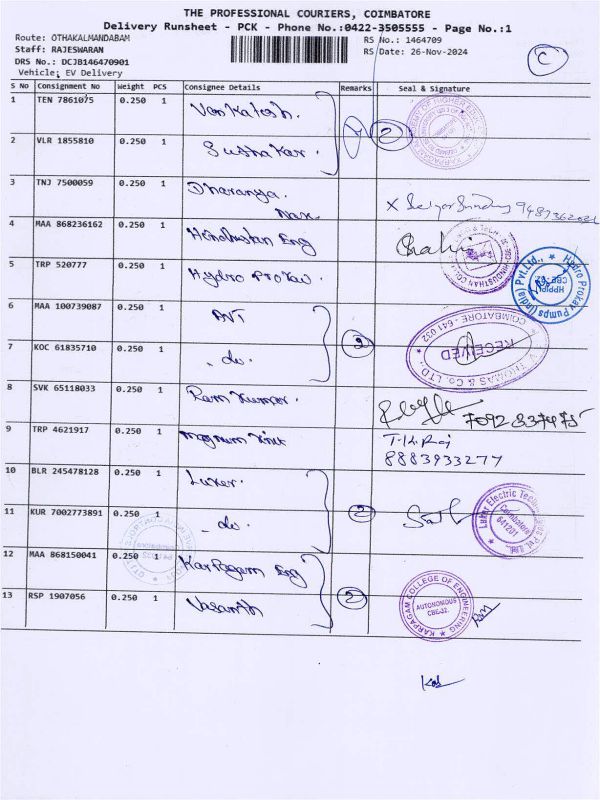 THE PROFESSIONAL COURIERS, COIMBATORE
Delivery Runsheet - PCK - Phone No.:0422-3505555 - Page No.:1
Route: OTHAKALMANDABAM
RS No.: 1464709
Staff: RAJESWARAN
RS Date: 26-Nov-2024
DRS No.: DCJB146470901
Vehicle: EV Delivery
C
S No Consignment No Weight PCS Consignee Details Remarks Seal & Signature
1 TEN 7861075 0.250 1 Venkatesh.
2 VLR 1855810 0.250 1 Sudhakar. 2
3 TNJ 7500059 0.250 1 Dharanya.
4 MAA 868236162 0.250 1 Hindustan Eng
5 TRP 520777 0.250 1 Hydro Prokav
Hydro Prokav Pumps (India) Pvt.Ltd.,
6 MAA 100739087 0.250 1 AVT
7 KOC 61835710 0.250 1 - do - 2
THOMAS & Co. LTD.,
COIMBATORE - 641 032
RECEIVED
8 SVK 65118033 0.250 1 Ram Kumar. 7092837475
9 TRP 4621917 0.250 1 Magnum T.K. Raj
8883933277
10 BLR 245478128 0.250 1 Luker.
11 KUR 7002773891 0.250 1 - do - 2
Luker Electric Technologies Pvt. Ltd.
Coimbatore
641201
12 MAA 868150041 0.250 1 Karpagam Eng
13 RSP 1907056 0.250 1 Vasanth 2
KARPAGAM COLLEGE OF ENGINEERING
AUTONOMOUS
CBE-32.